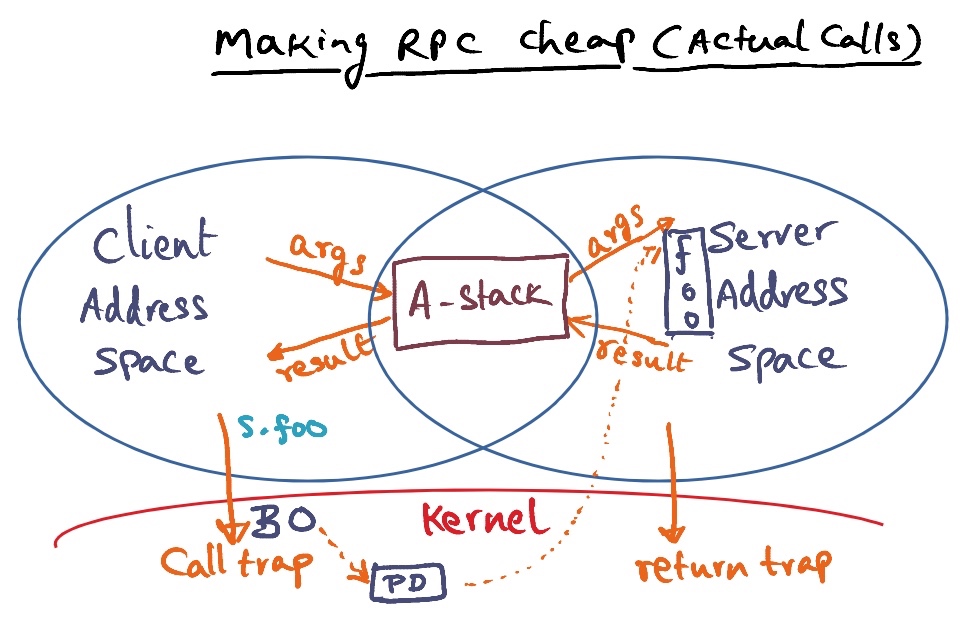 Making RPC cheap (Actual Calls)
Client
Address
Space
args
result
A-stack
args
result
foo
Server
Address
Space
s.foo
BO
Kernel
Call trap
PD
return trap